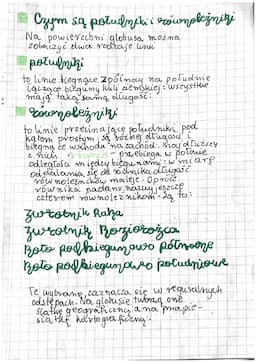 Czym są południki i równoleżniki
Na powierzchni globusa można
zobaczyć dwa rodzaje linii
południki
to linie biegnące z północy na południe
łączące bieguny kuli ziemskiej: wszystkie
mają taką samą długość.
równoleżniki
to linie przecinające południki pod
kątem prostym, są różnej długości i
biegną ze wschodu na zachód. najdłuższy
z nich - równik - przebiega w połowie
odległości między biegunami; w miarę
oddalania się od równika długość
równoleżników maleje. Oprócz
równika nadano nazwy jeszcze
czterem równoleżnikom. Są to:
Zwrotnik Raka
Zwrotnik Koziorożca
Koło podbiegunowe północne
Koło podbiegunowe południowe
Te wybrane, zaznacza się w regularnych
odstępach. Na globusie tworzą one
siatkę geograficzną a na mapie-
siatkę kartograficzną.